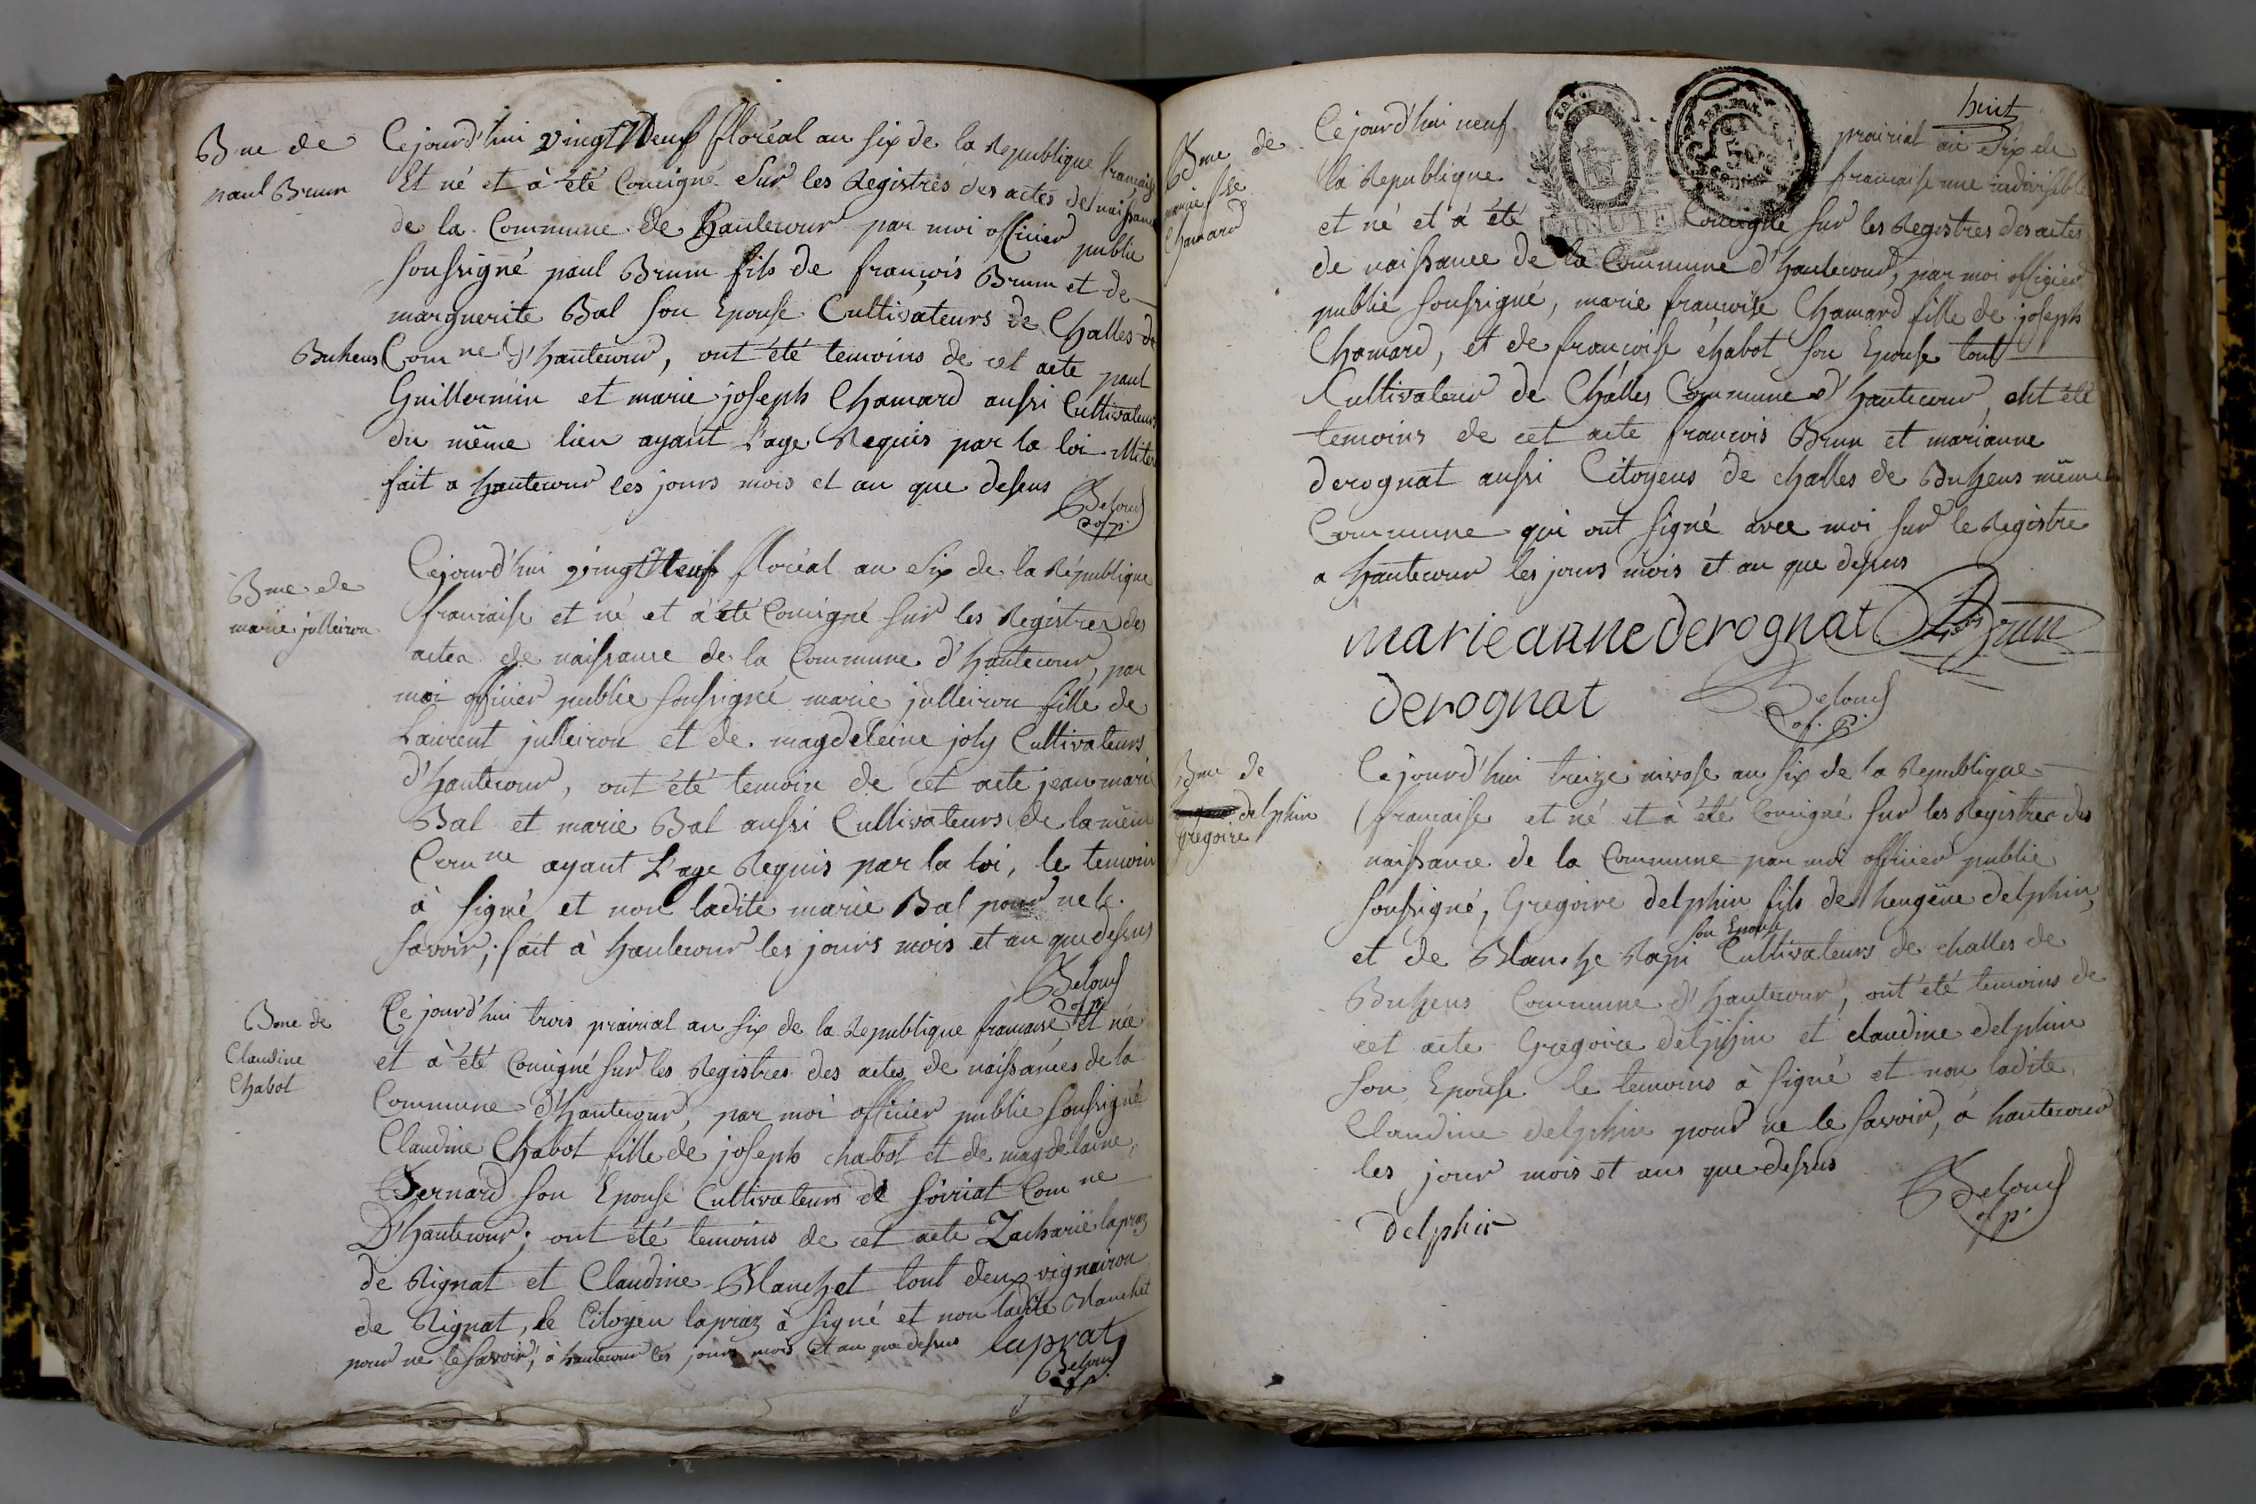 Bme de
paul Brun
Cejourd'hui vingt Neuf floréal an six de la Republique francaise
Et né et à été Consigné Sur les Registres des actes de naissance
de la Commune de Hautecour par moi officier public
soussigné paul Brun fils de francois Brun et de
marguerite Bal son Epouse Cultivateurs de Challes de
Buhens Com ne d'hautecour, ont été temoins de cet acte paul
Guillermin et marie joseph Chamard aussi Cultivateurs
du même lieu ayant L'age Requis par la loi
fait a hautecour les jours mois et an que dessus
Beloud
of p.
Bme de
marie julleiron
Cejourd'hui vingt Neuf floréal an Six de la République
francaise et né et à été Consigné sur les Registres des
actes de naissance de la Commune d'hautecour, par
moi officier public soussigné marie julleiron fille de
Laurent julleiron et de magdeleine joly Cultivateurs
d'hautecour, ont été temoin de cet acte jean marie
Bal et marie Bal aussi Cultivateurs de la même
Com ne ayant L'age Requis par la loi, le temoin
à signé et non ladite marie Bal pour ne le
savoir; fait à hautecour les jours mois et an que dessus
Beloud
of p.
Bme de
Claudine
Chabot
Ce jourd'hui trois prairial an six de la Republique francaise et née
et à été Consigné sur les Registres des actes de naissances de la
Commune d'hautecour, par moi officier public soussigné
Claudine Chabot fille de joseph chabot et de magdelaine
Bernard son Epouse Cultivateurs de soiriat Com ne
D'hautecour; ont été temoins de cet acte Zacharie lapraz
de Rignat et Claudine Blanchet tout deux vigneiron
de Rignat, le Citoyen lapraz à signé et non ladite Blanchet
pour ne le savoir, à hautecour les jours mois et an que dessus
laprat
Beloud
of p.
huit
Bme de
marie fse
Chamard
Ce jourd'hui neuf prairial an Six de
la Republique francaise une indivisible
et né et à été Consigné sur les Registres des actes
MINUTE
de naissance de la Commune d'hautecour, par moi officier
public soussigné, marie francoise Chamard fille de joseph
Chamard, et de francoise chabot son Epouse tout
Cultivateur de Challes Commune d'hautecour, ont été
temoins de cet acte francois Brun et marianne
derognat aussi Citoyens de challes de Buhens même
Commune qui ont signé avec moi sur le Registre
a hautecour les jours mois et an que dessus
marieannederognat Brun
derognat
Beloud
of. p.
Bme de
delphin
Gregoire
Cejourd'hui treize nivose an six de la Republique
francaise et né et à été Consigné sur les Registres des
naissance de la Commune par moi officier public
soussigné, Gregoire delphin fils de heugene delphin,
et de Blanche Rapi son Epouse Cultivateurs de challes de
Buhens Commune d'hautecour, ont été temoins de
cet acte Gregoire delphin et claudine delphin
son Epouse le temoins à signé et non ladite
Claudine delphin pour ne le savoir, à hautecour
les jour mois et ans que dessus
Beloud
of p.
delphin